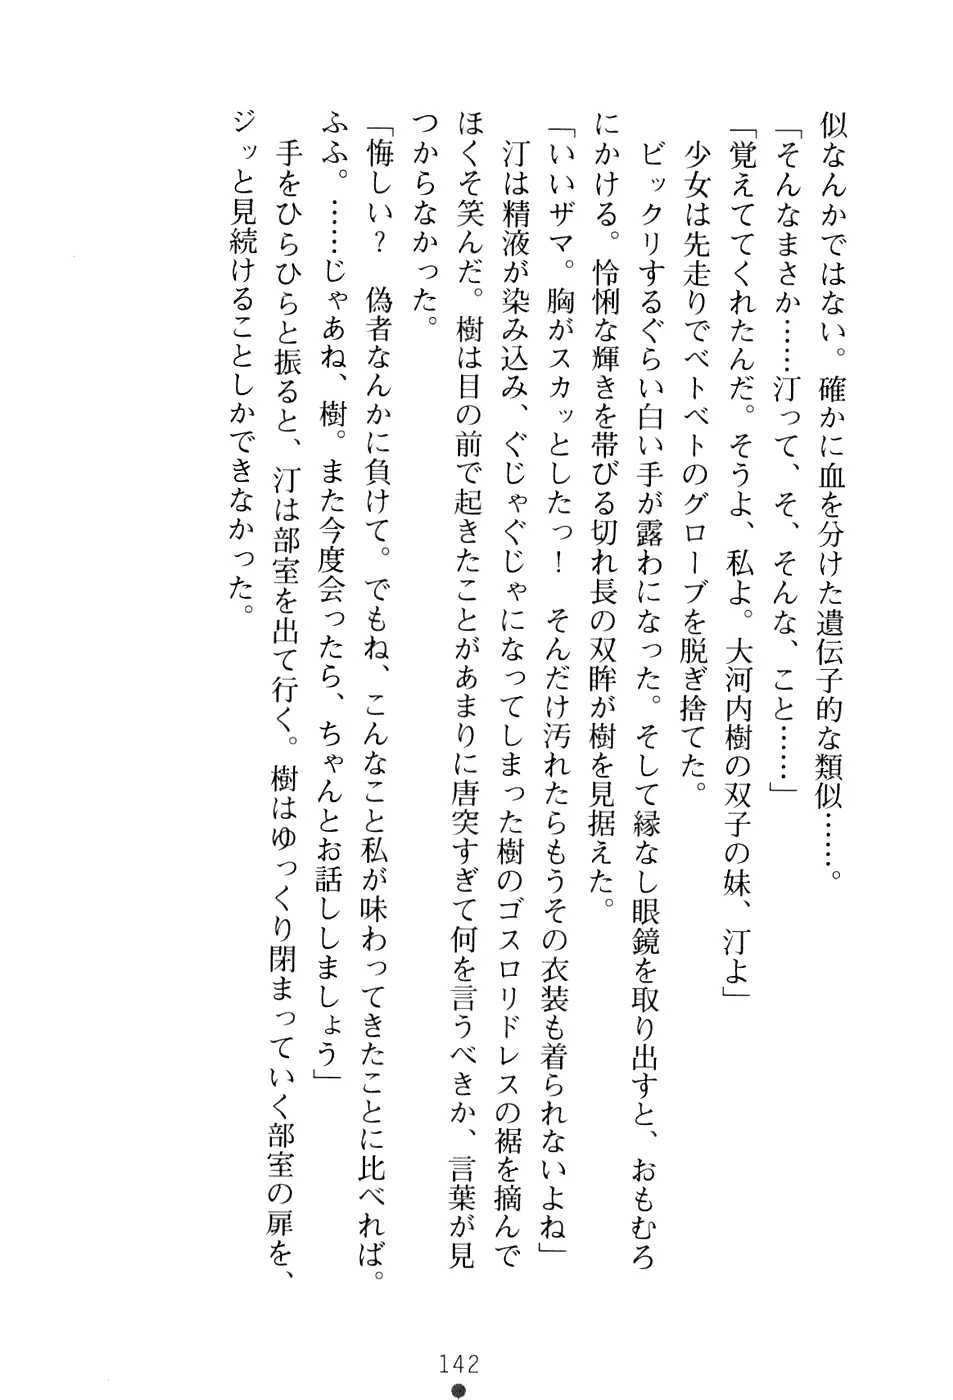 似なんかではない。確かに血を分けた遺伝子的な類似……。
「そんなまさか……汀って、そ、そんな、こと……」
「覚えててくれたんだ。そうよ、私よ。大河内樹の双子の妹、汀よ」
　少女は先走りでベトベトのグローブを脱ぎ捨てた。
　ビックリするぐらい白い手が露わになった。そして縁なし眼鏡を取り出すと、おもむろ
にかける。怜悧な輝きを帯びる切れ長の双眸が樹を見据えた。
「いいザマ。胸がスカッとしたっ！　そんだけ汚れたらもうその衣装も着られないよね」
　汀は精液が染み込み、ぐじゃぐじゃになってしまった樹のゴスロリドレスの裾を摘んで
ほくそ笑んだ。樹は目の前で起きたことがあまりに唐突すぎて何を言うべきか、言葉が見
つからなかった。
「悔しい？　偽者なんかに負けて。でもね、こんなこと私が味わってきたことに比べれば。
ふふ。……じゃあね、樹。また今度会ったら、ちゃんとお話ししましょう」
　手をひらひらと振ると、汀は部室を出て行く。樹はゆっくり閉まっていく部室の扉を、
ジッと見続けることしかできなかった。
142